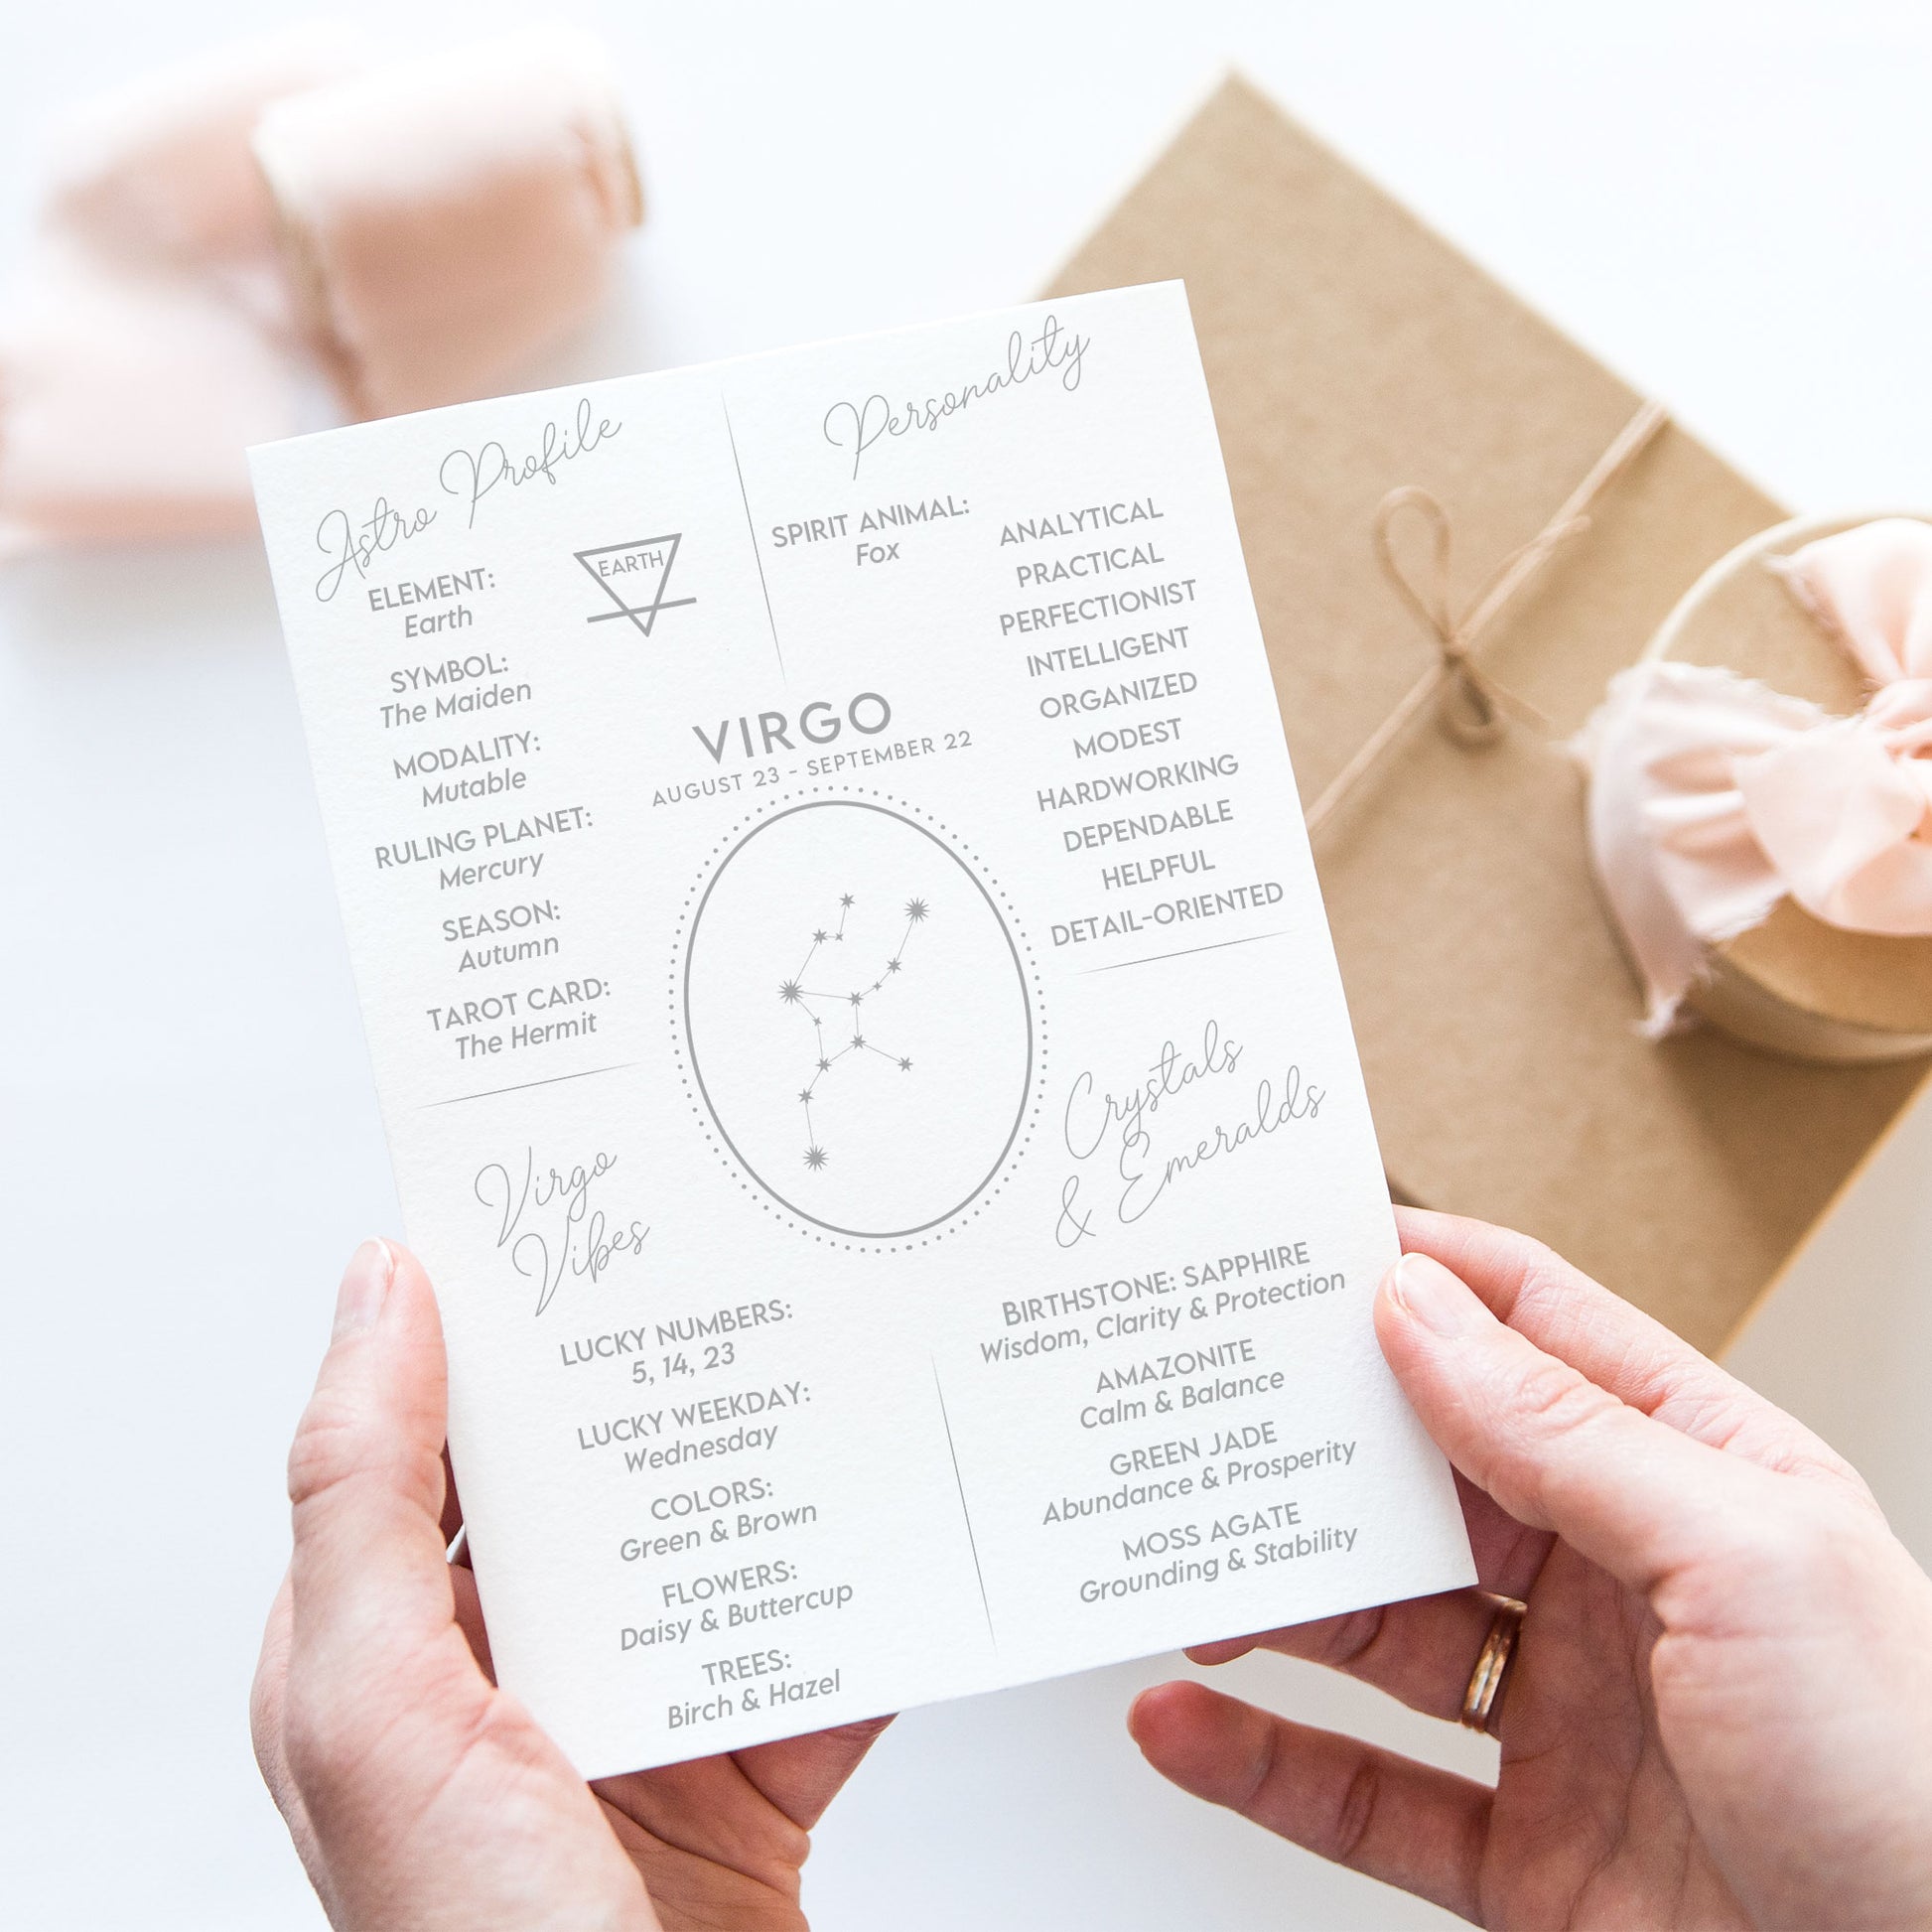 Astro Profile
EARTH
ELEMENT:
Earth
SYMBOL:
The Maiden
MODALITY:
Mutable
RULING PLANET:
Mercury
SEASON:
Autumn
TAROT CARD:
The Hermit
Personality
SPIRIT ANIMAL:
Fox
ANALYTICAL
PRACTICAL
PERFECTIONIST
INTELLIGENT
ORGANIZED
MODEST
HARDWORKING
DEPENDABLE
HELPFUL
DETAIL-ORIENTED
VIRGO
AUGUST 23 - SEPTEMBER 22
Virgo
Vibes
LUCKY NUMBERS:
5, 14, 23
LUCKY WEEKDAY:
Wednesday
COLORS:
Green & Brown
FLOWERS:
Daisy & Buttercup
TREES:
Birch & Hazel
Crystals
& Emeralds
BIRTHSTONE: SAPPHIRE
Wisdom, Clarity & Protection
AMAZONITE
Calm & Balance
GREEN JADE
Abundance & Prosperity
MOSS AGATE
Grounding & Stability